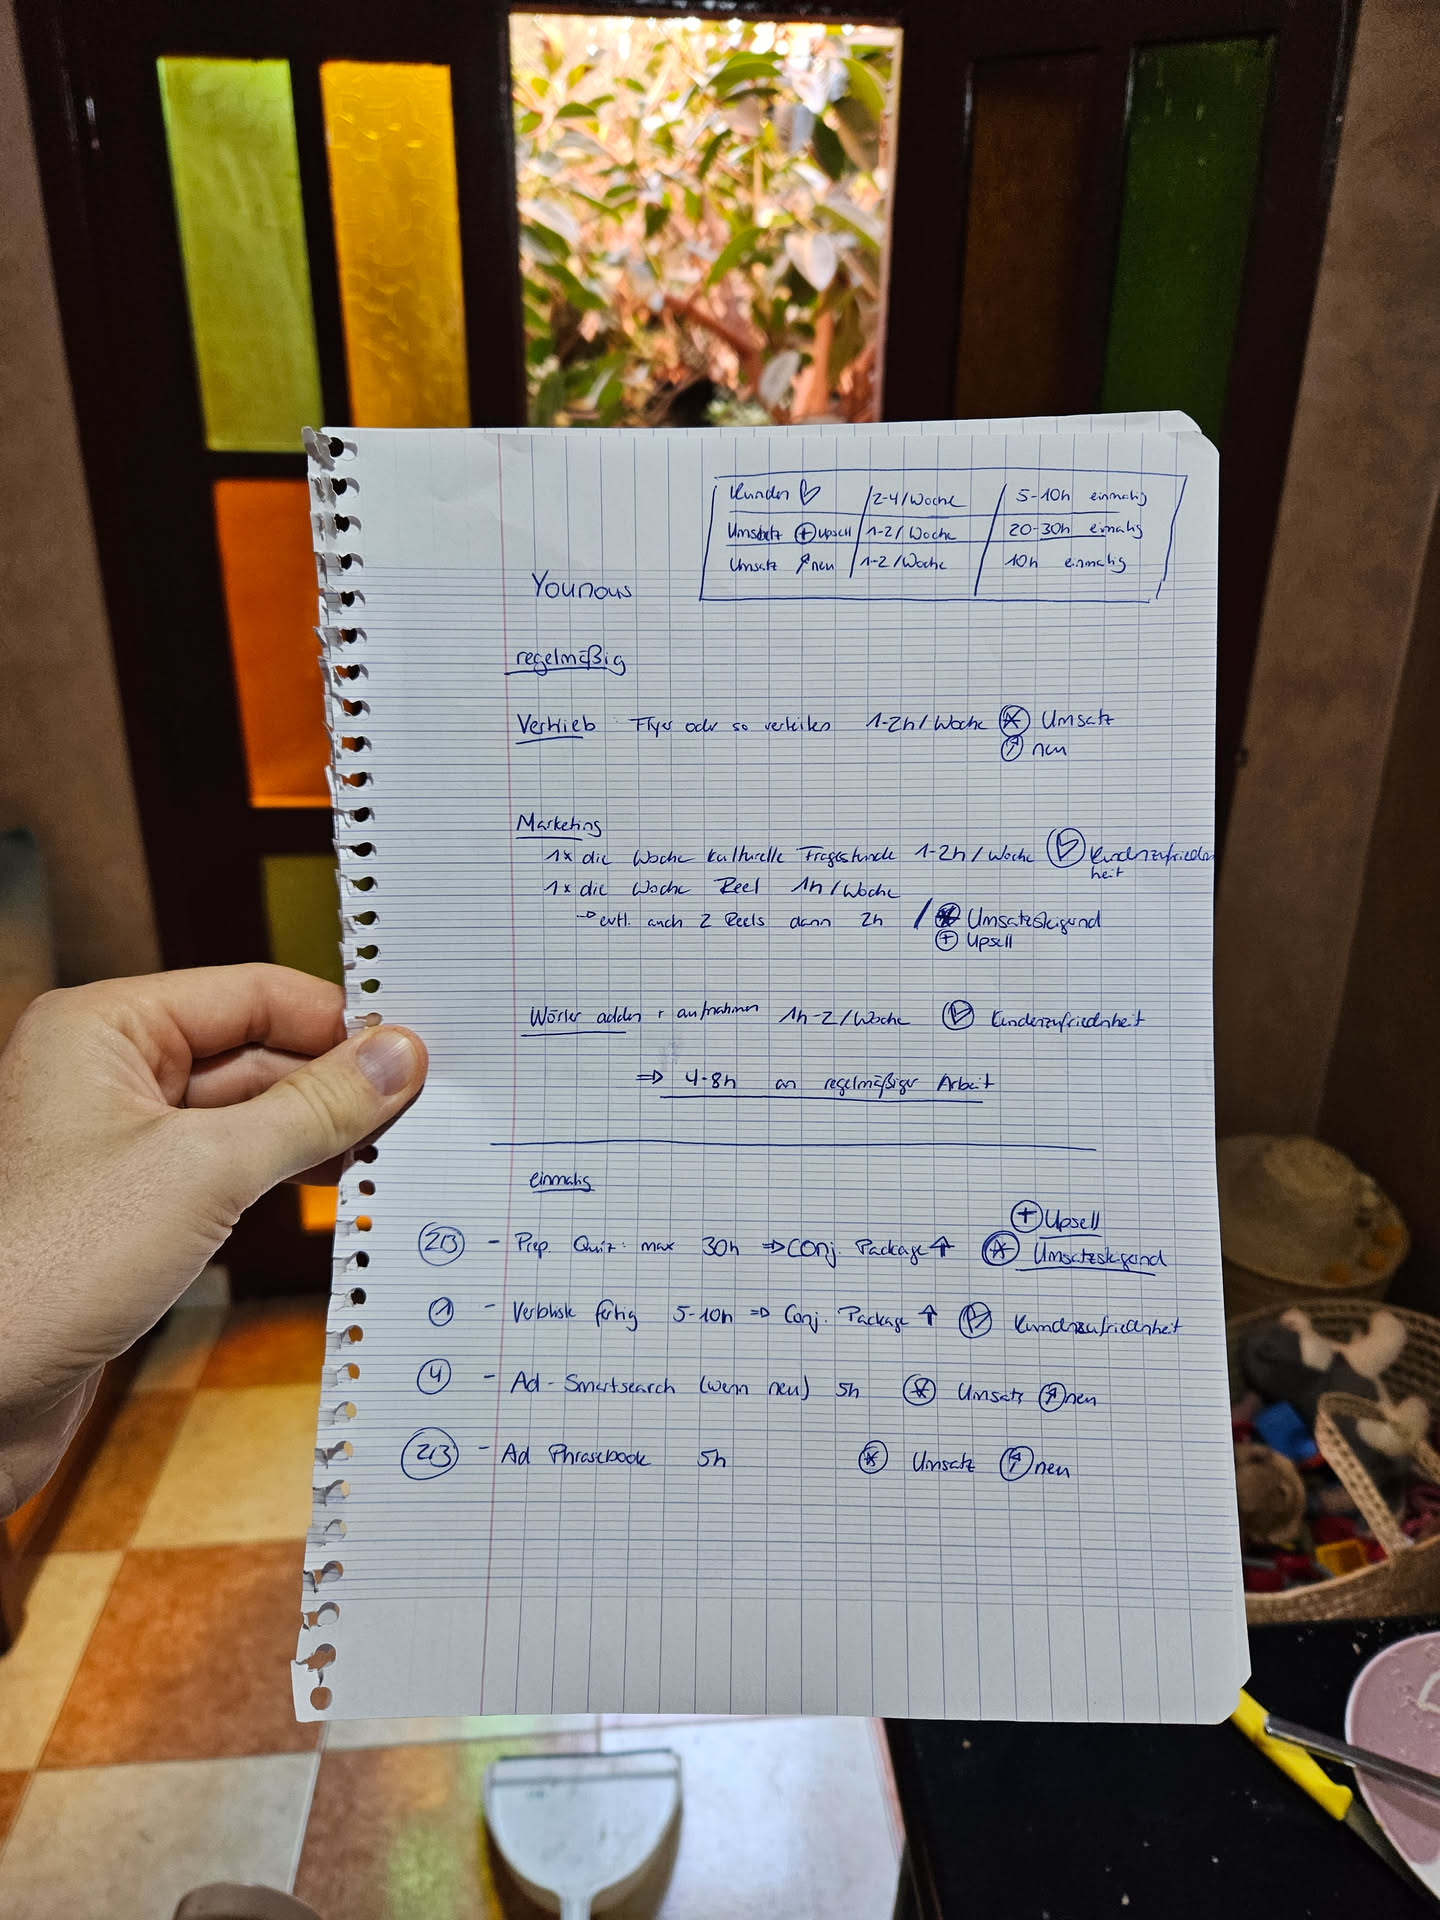 Kunden ♡ 2-4/Woche 5-10h einmalig
Umsatz ⊕ upsell 1-2/Woche 20-30h einmalig
Umsatz ↗ neu 1-2/Woche 10h einmalig
Younous
regelmäßig
Vertrieb: Flyer oder so verteilen 1-2h/Woche Umsatz
↗ neu
Marketing
1x die Woche kulturelle Fragestunde 1-2h/Woche ♡ Kundenzufrieden
heit
1x die Woche Reel 1h/Woche
→ evtl. auch 2 Reels dann 2h / Umsatzsteigernd
⊕ Upsell
Wörter adden + aufnahmen 1h-2/Woche ♡ Kundenzufriedenheit
⇒ 4-8h an regelmäßiger Arbeit
einmalig
⊕ Upsell
2/3 - Prep. Quiz: max 30h ⇒ Conj. Package ↑ Umsatzsteigernd
1 - Verbliste fertig 5-10h ⇒ Conj. Package ↑ ♡ Kundenzufriedenheit
4 - Ad-Smartsearch (wenn neu) 5h Umsatz ↗ neu
2/3 - Ad Phrasebook 5h Umsatz ↗ neu